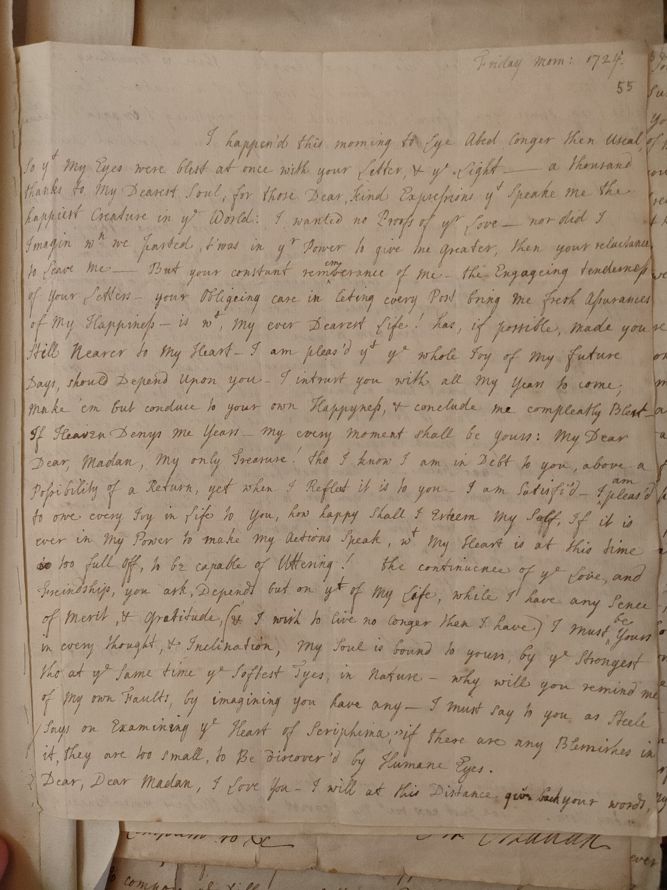 Friday Morn: 1724.
55
I happen'd this morning to Lye Abed Longer then Useal
So yt My Eyes were blest at once with your Letter, & ye Light — a thousand
thanks to My Dearest Soul, for those Dear, kind Expressions yt Speake me the
happiest Creature in ye World: I wanted no Proofs of yr Love — nor did I
Imagin wn we parted, t'was in yr Power to give me Greater, then your reluctance
to Leave me — But your constant remembrance of Me — the Engageing tenderness
of your Letters — your Obligeing care in Leting every Post bring me fresh Asurances
of My Happiness — is wt, My ever Dearest Life! has, if possible, made you
Still Nearer to My Heart — I am pleas'd yt ye whole Joy of My future
Days, should Depend Upon you — I intrust you with all My Years to come,
Make 'em but conduce to your own Happyness, & conclude me compleatly Blest —
If Heaven Denys Me Years — My every Moment shall be yours: My Dear
Dear, Madan, My only Treasure! tho I know I am in Debt to you, above a
Possibility of a Return, yet when I Reflect it is to you — I am Satisfi'd — I am pleas'd
to owe every Joy in Life to You, how happy shall I Esteem My Self, If it is
ever in My Power to make my Actions Speak, wt My Heart is at this time
too full off, to be capable of Uttering! the continuence of ye Love, and
Freindship, you ask, Depends but on yt of My Life, while I have any Sence
of Merit, & Gratitude, (& I wish to live no longer then I have) I Must be Yours
in every thought, & Inclination, My Soul is bound to yours, by ye Strongest
tho at ye Same time ye Softest Tyes, in Nature — why will you remind me
of My own Faults, by imagining you have any — I must say to you as Steele
Says on Examining ye Heart of Seriphina, "if there are any Blemishes in
it, they are too small, to Be Discover'd by Humane Eyes.
Dear, Dear Madan, I Love You — I will at this Distance give back your words,